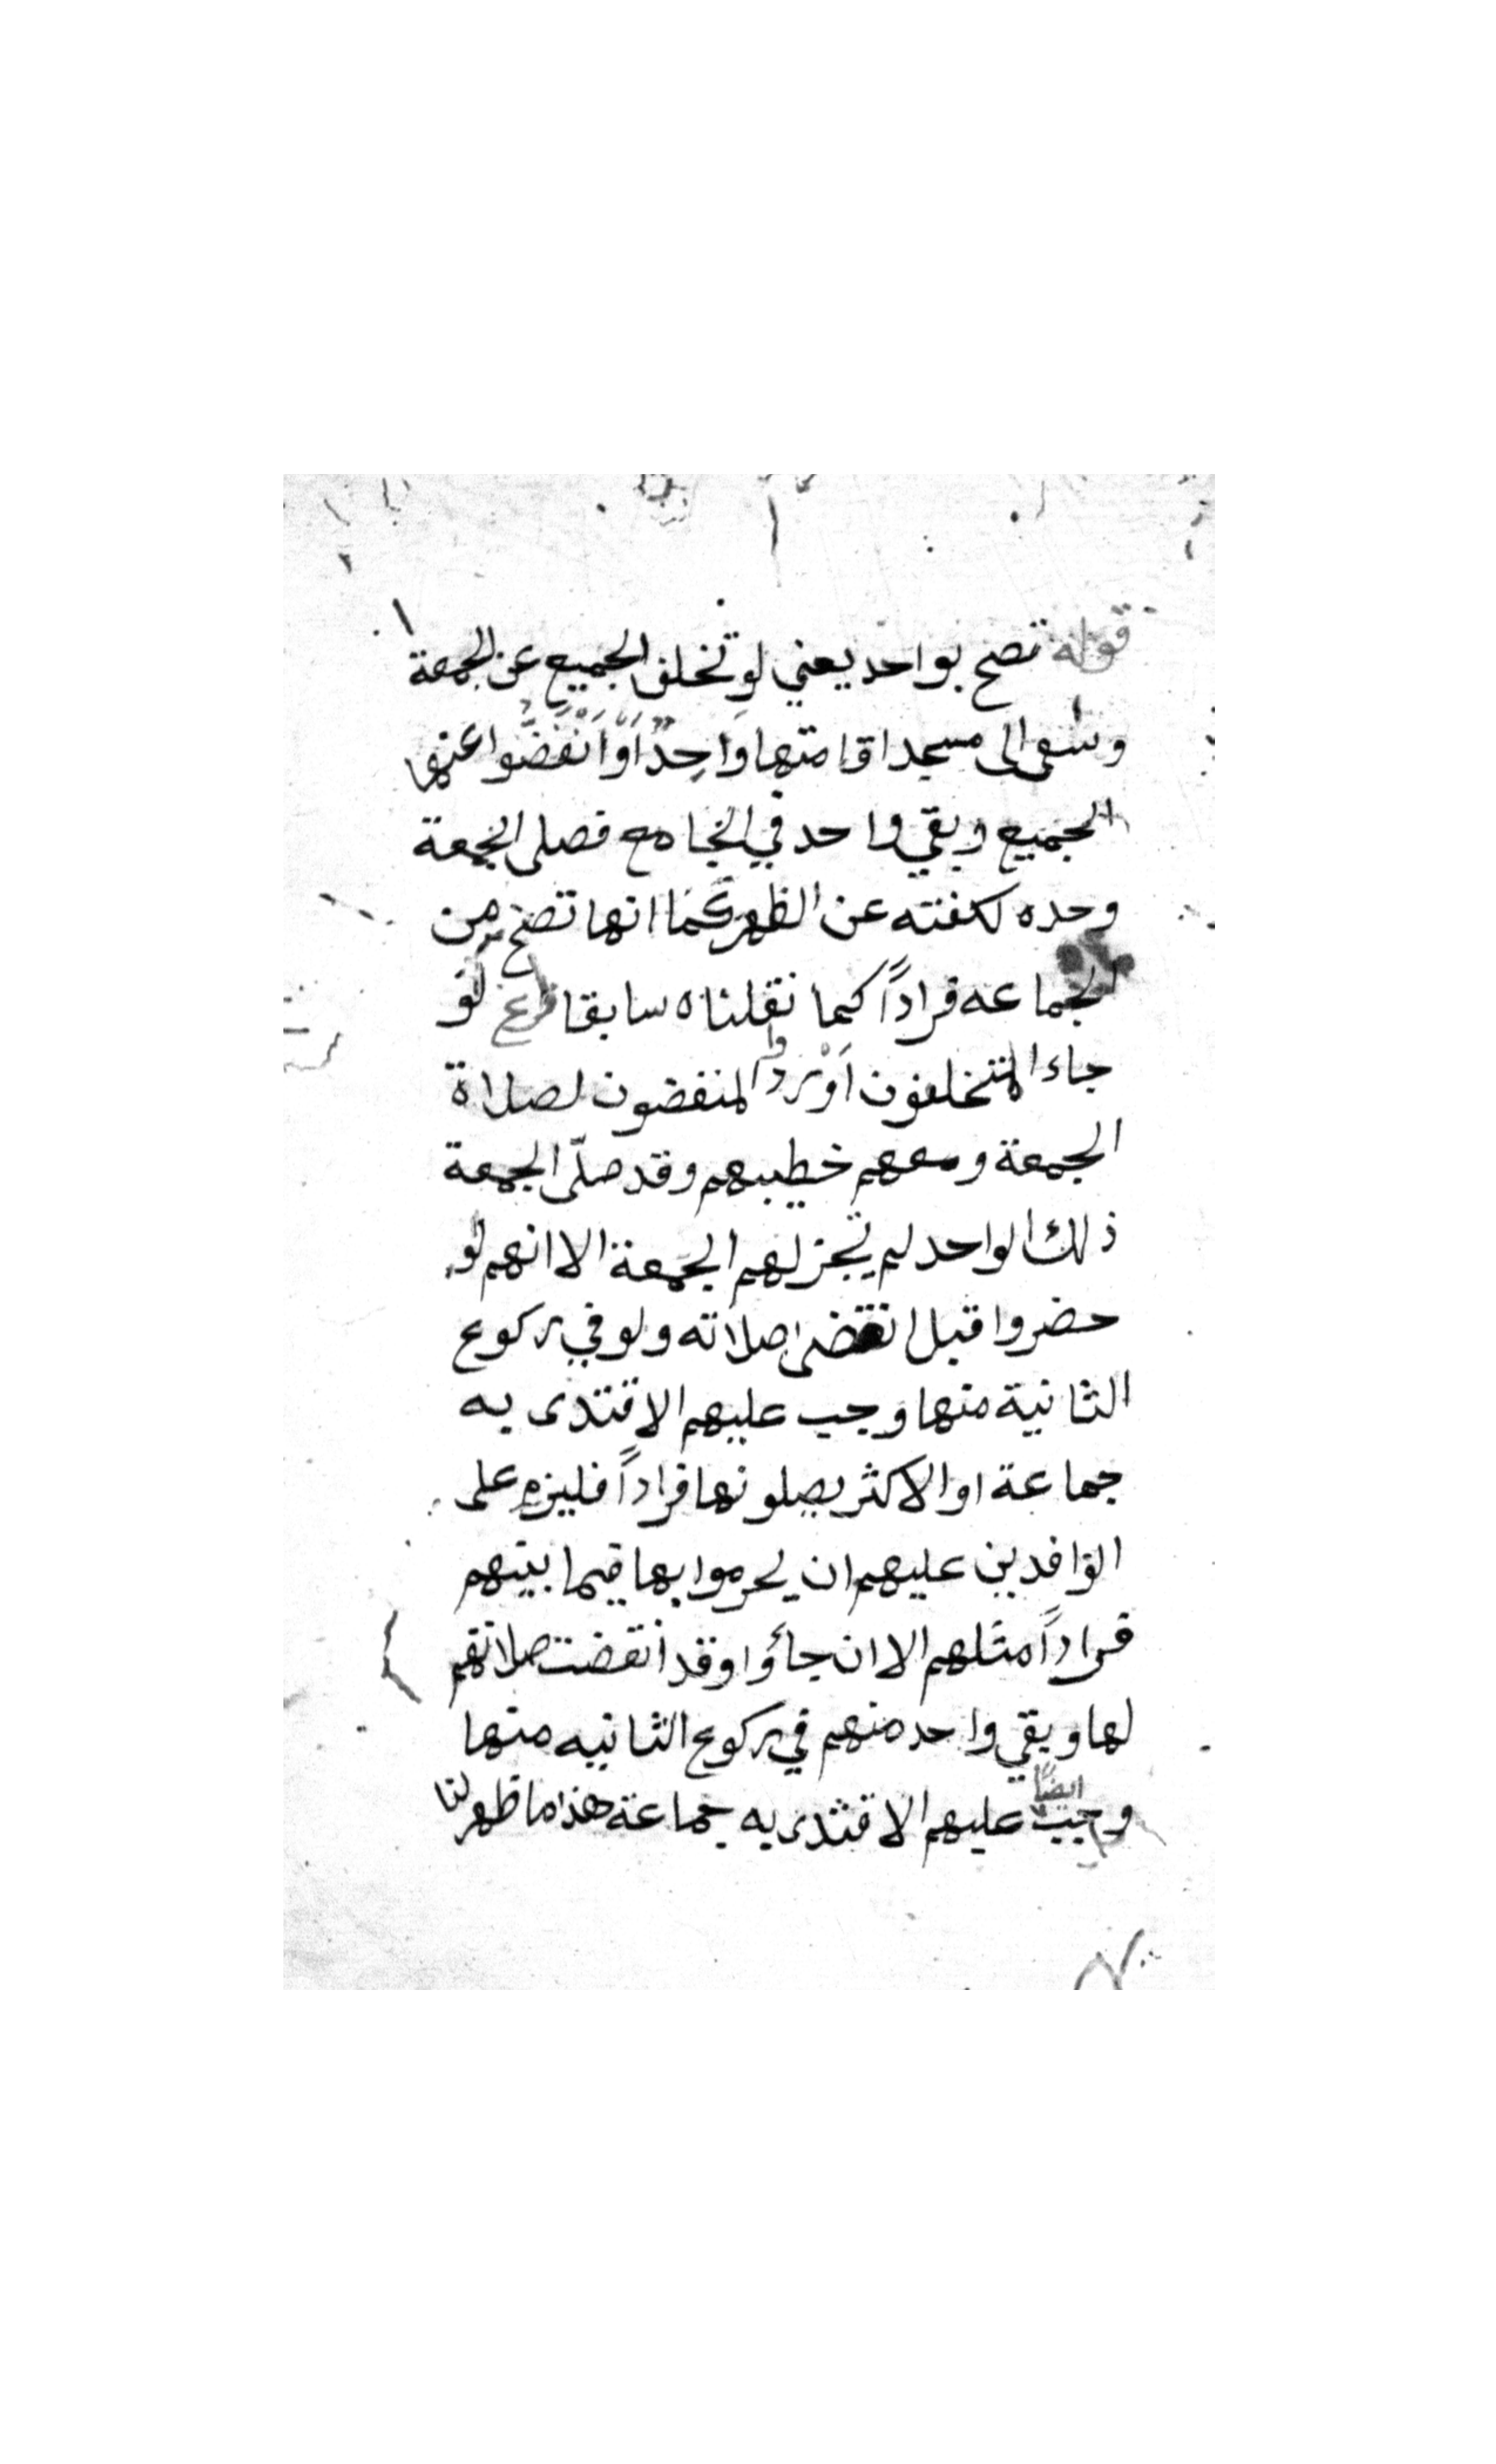 قوله تصح بواحد يعني لو تخلف الجميع عن الجمعة
وسعى الى مسجد اقامتها وَاحِدٌ اَوْ اَنْفَضُّوا عنها
الجميع وبقي واحد في الجامع فصلى الجمعة
وحده لكفته عن الظهر كما انها تصح من
الجماعه فراداً كما نقلناه سابقا فرع لو
جاء المتخلفون اَوْ ردوا المنفضون لصلاة
الجمعة ومعهم خطيبهم وقد صلّى الجمعة
ذلك الواحد لم تجز لهم الجمعة الا انهم لو
حضروا قبل انقضى صلاته ولو في ركوع
الثانية منها وجب عليهم الاقتدى به
جماعة او الاكثر يصلونها فراداً فليزم على
الوافدين عليهم ان يحرموا بها فيما بينهم
فراداً مثلهم الا ان جاؤا وقد انقضت صلاتهم
لها وبقي واحد منهم في ركوع الثانيه منها
وجب ايضاً عليهم الاقتدى به جماعة هذا ما ظهر لنا